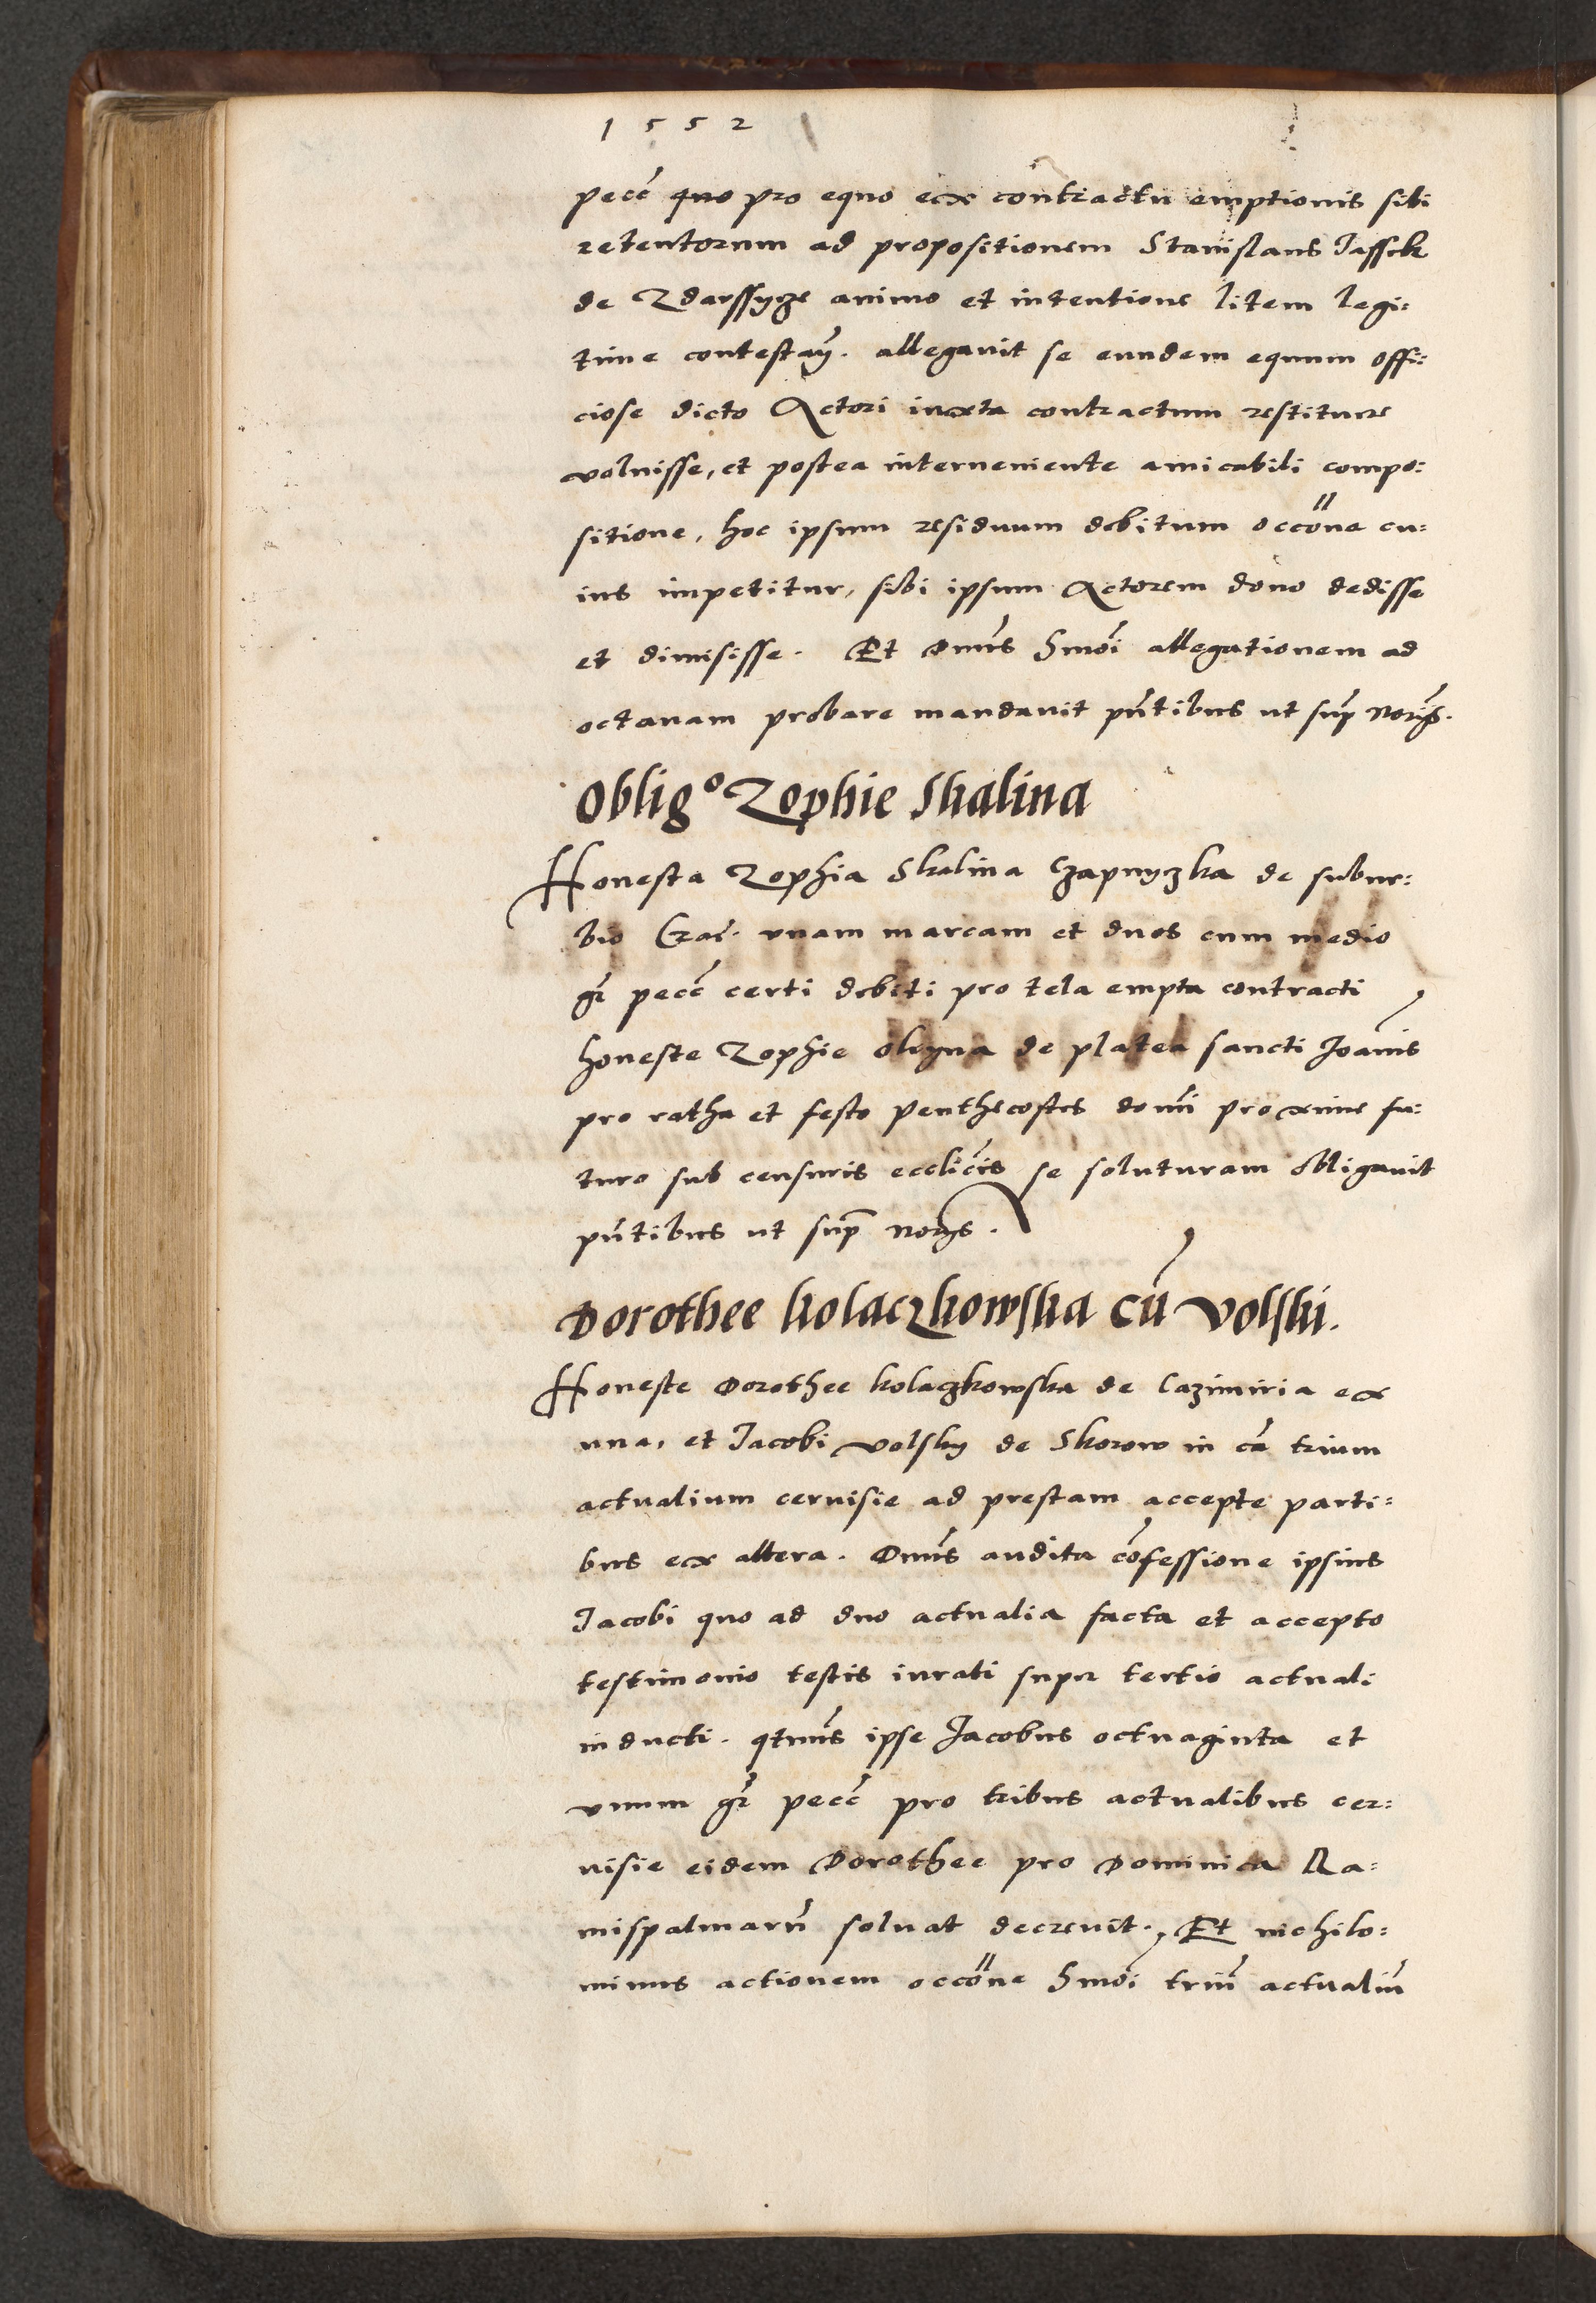 1552
pecc̃ quo pro equo ex contractu emptionis sibi
retentorum ad propositionem Stanislaus Jassek
de Zdarssycze animo et intentione litem legi:
time contestañ. allegauit se eundem equum offi:
ciose dicto Actori iuxta contractum restituere
voluisse, et postea interueniente amicabili compo:
sitione, hoc ipsum residuum debitum occõne cu:
ius impetitur, sibi ipsum Actorem dono dedisse
et dimisisse. Et Dnus hmõi allegationem ad
octauam probare mandauit pñtibus ut sup̃
Obligᵒ Zophie Skalina
Honesta Zophia Skalina Czapnyczka de subur:
bio Crac̃. vnam marcam et duos cum medio
gr̃ pecc̃ certi debiti pro tela empta contracti
honeste Zophie olyyna de platea sancti Joañis
pro ratha et festo penthecostes domi proxime fu:
turo sub censuris ecclic̃is se soluturam obligauit
pñtibus ut sup̃
Dorothee kolaczkowska cũ Volski.
Honeste Dorothee kolaczkowska de Cazimiria ex
una, et Jacobi volsky de Skorow in cã trium
actualium ceruisie ad prestam accepte parti:
bus ex altera. Dnus audita cõfessione ipsius
Jacobi quo ad duo actualia facta et accepto
testimonio testis iurati super tertio actuali
inducti. qtnus ipse Jacobus octuaginta et
vnum gr̃ pecc̃ pro tribus actualibus cer:
uisie eidem Dorothee pro Dominica Ra:
mispalmarũ soluat decreuit. Et nichilo:
minus actionem occõne hmõi triũ actualiũ